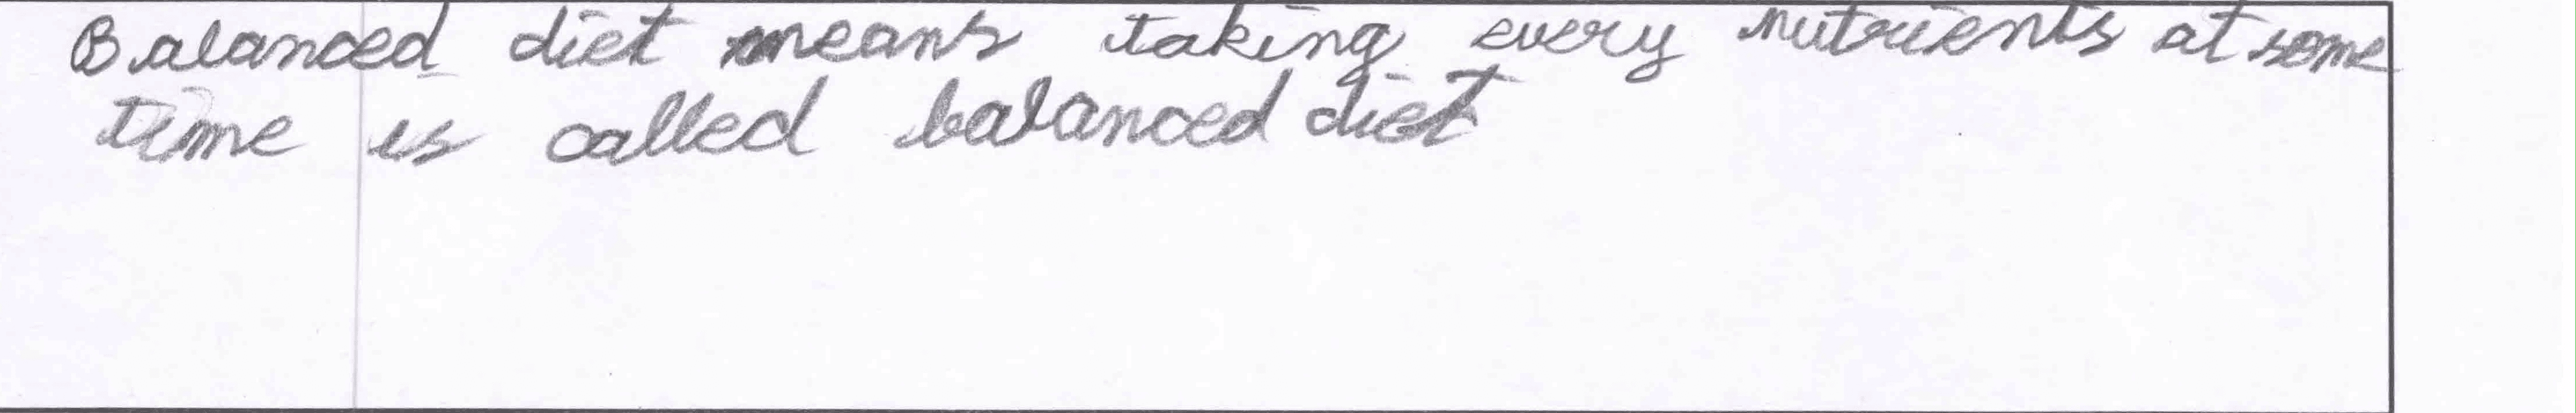 Balanced diet means taking every nutrients at some
time is called balanced diet